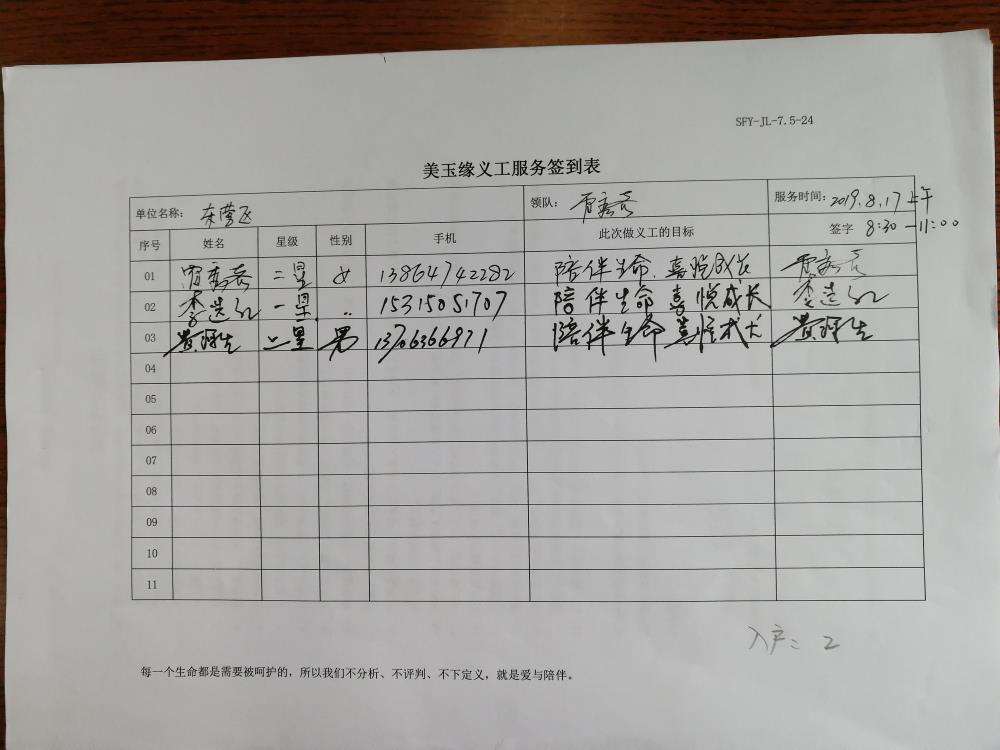 SFY-JL-7.5-24
美玉缘义工服务签到表
单位名称: 东营区 领队: 服务时间: 2019.8.17上午
序号 姓名 星级 性别 手机 此次做义工的目标 签字 8:30-11:00
01 二星 女 13864742282 陪伴生命.喜悦成长
02 李选红 一星 .. 15315051707 陪伴生命 喜悦成长 李选红
03 二星 男 13706366971 陪伴生命 喜悦成长
04
05
06
07
08
09
10
11
入户: 2
每一个生命都是需要被呵护的，所以我们不分析、不评判、不下定义，就是爱与陪伴。